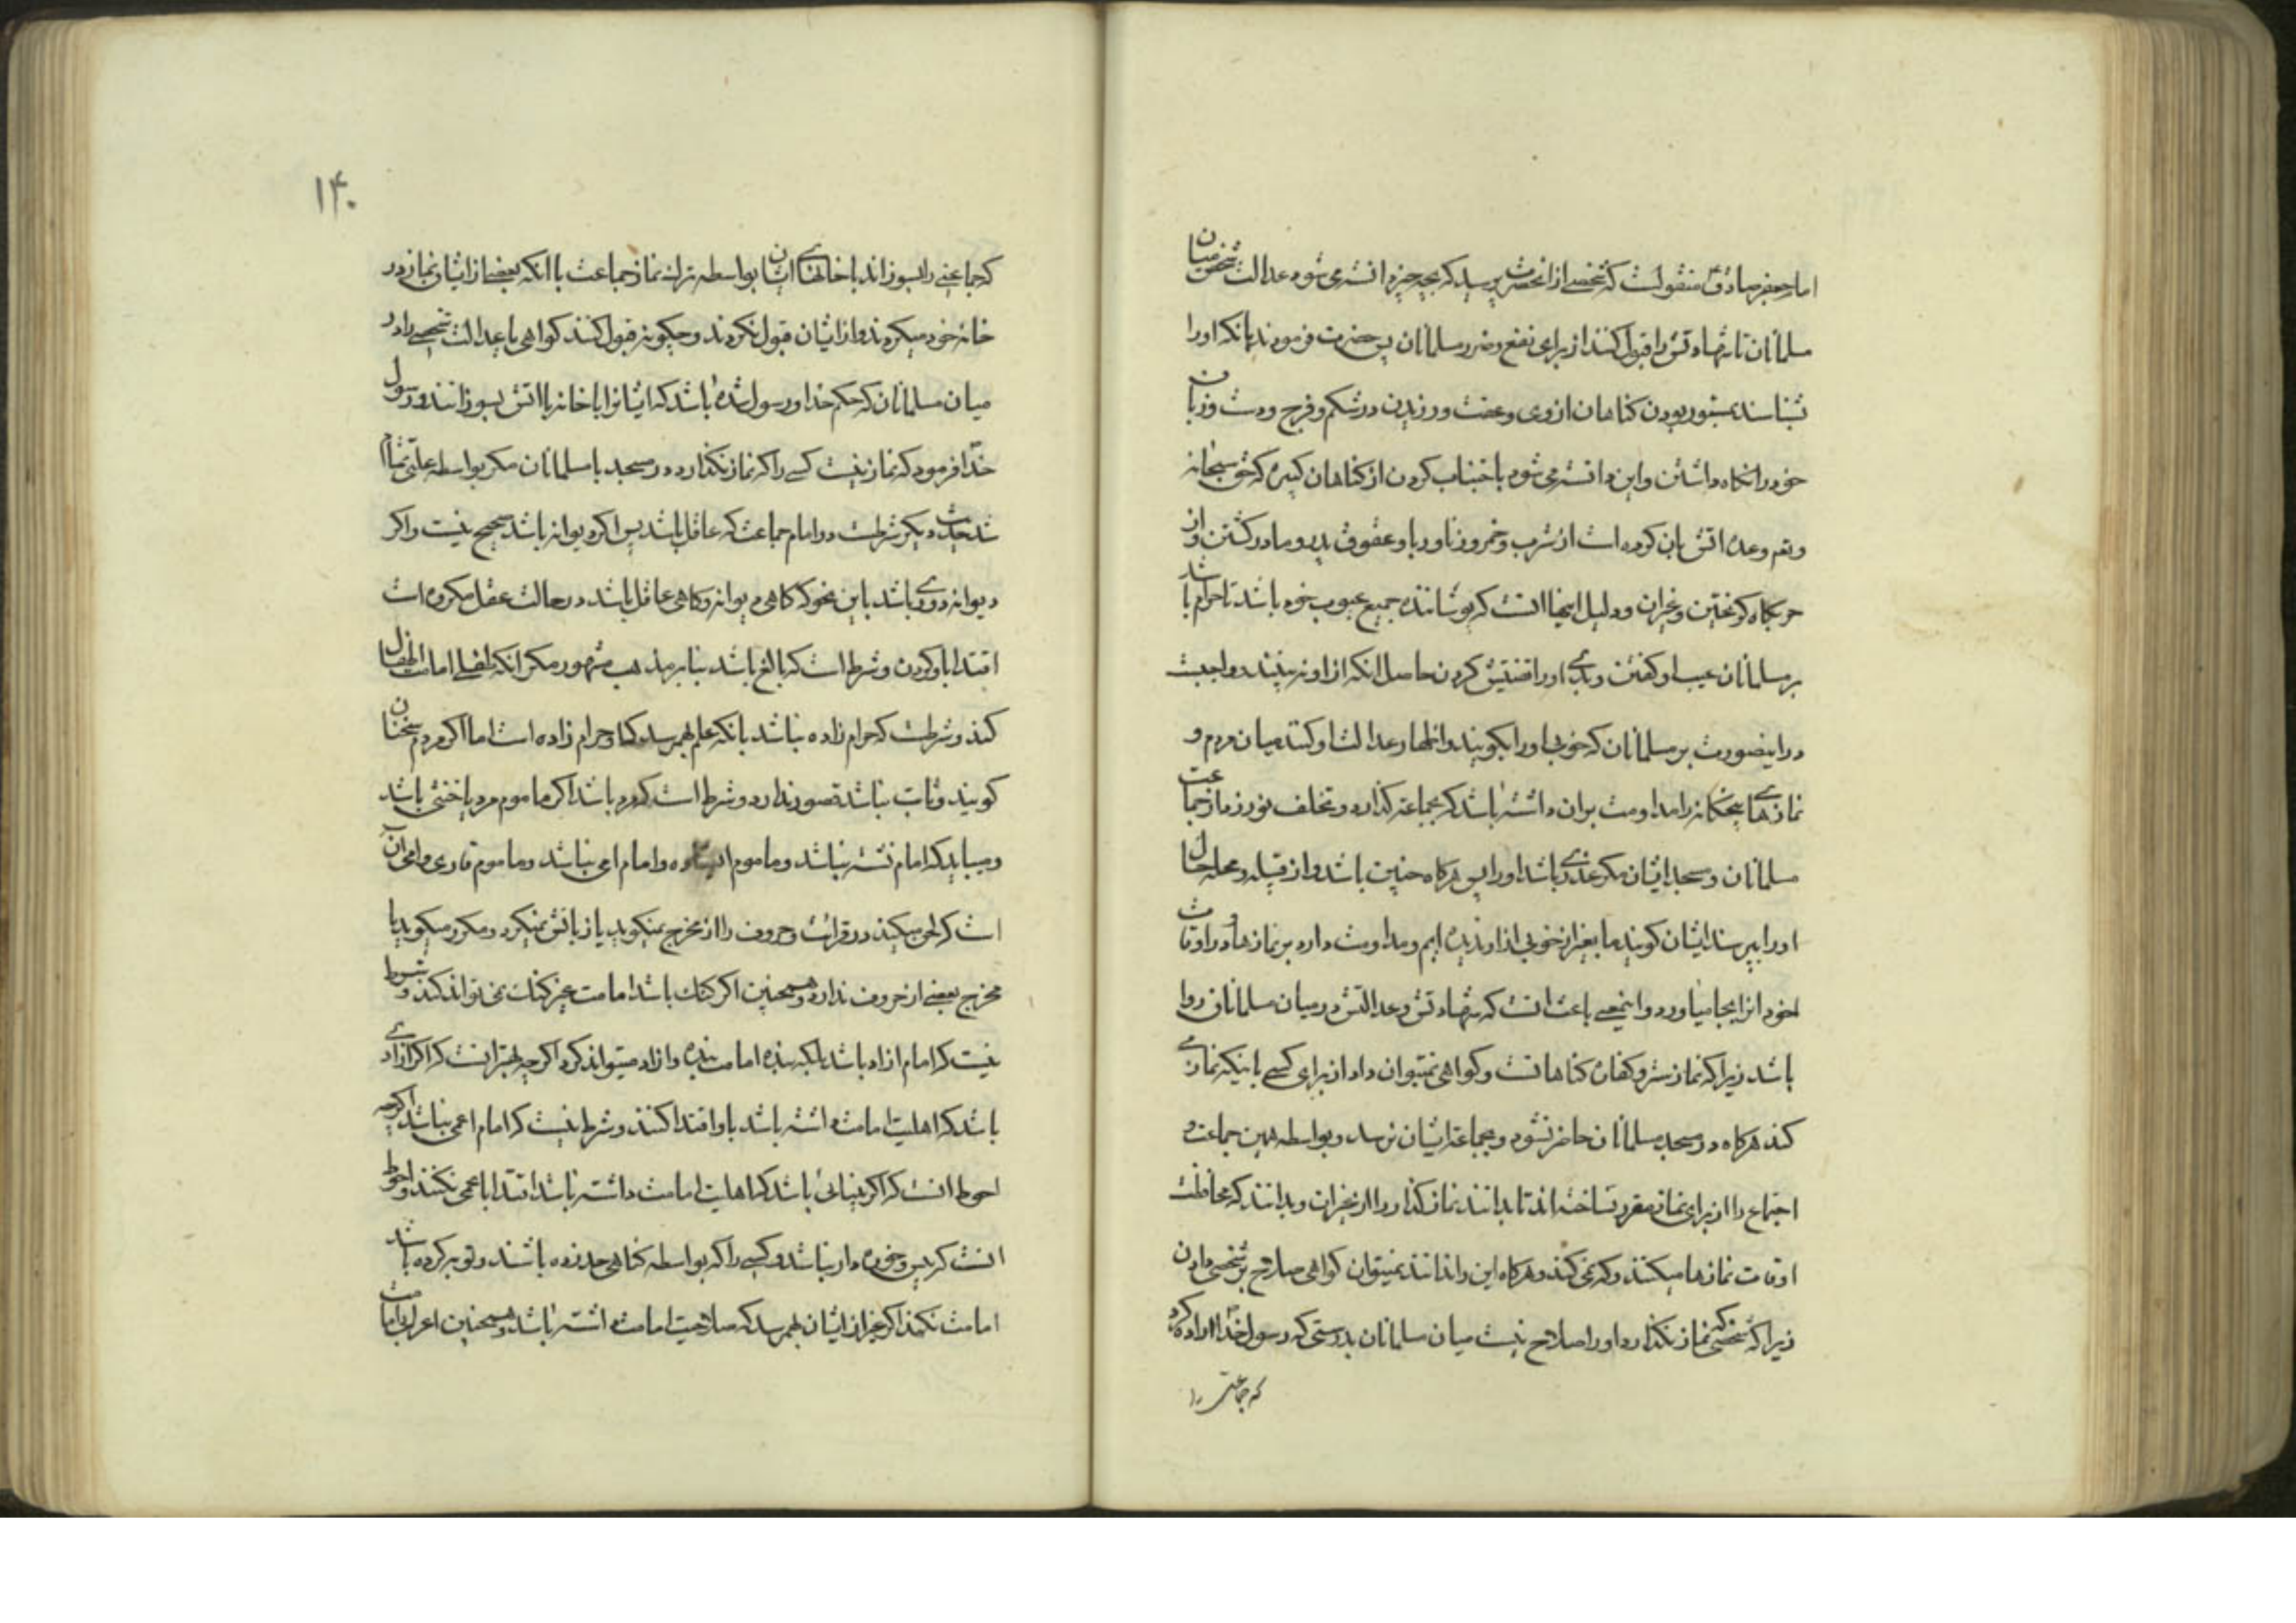 امام جعفر صادق ع منقولست که شخصی از انحضرت پرسید که بچه چیز دانسته می شود عدالت شخصی میان
مسلمانان تا شهادتش را قبول کنند از برای نفع و ضرر مسلمانان پس حضرت فرمودند بانکه او را
بشناسند بمستور بودن کناهان از وی و عفت ورزیدن در شکم و فرج و دست و زبان
خود را نکاه داشتن و این دانسته می شود باجتناب کردن از کناهان کبیره که حق سبحانه
و تعم وعده اتش بان کرده است از شرب و خمر و زنا و ربا و عقوق پدر و مادر کشتن و از
حربکاه کریختن و غیران و دلیل اینها انست که پوشاننده جمیع عیوب خود باشد تا حرام باشد
بر مسلمانان عیب او کفتن و بدی او را تفتیش کردن حاصل انکه از او نه بینند و واجبست
در اینصورت بر مسلمانان که خوبی او را بکویند و اظهار عدالت او کنند میان مردم و
نمازهای پنجکانه را مداومت بران داشته باشد که بجماعه کذارد و تخلف نورزد از جماعت
مسلمانان و مسجد ایشان مکر عذری باشد او را پس هرکاه چنین باشد و از قبیله و محله حال
او را بپرسند ایشان کویند ما بغیر از خوبی از او ندیده ایم و مداومت دارد بر نمازها و در اوقات
خود انرا بجا میاورد و اینمعنی باعث انست که شهادتش و عدالتش در میان مسلمانان روا
باشد زیرا که نماز ستر و کفاره کناهانست و کواهی نمیتوان داد از برای کسی باینکه نماز می
کند هرکاه در مسجد مسلمانان حاضر نشود و بجماعه ایشان نرسد و بواسطه همین جماعت و
اجتماع را از برای نماز مقرر ساخته اند تا بدانند نماز کذار را از غیران و بدانند که محافظت
اوقات نمازها میکند و که نمی کند و هرکاه این را ندانند نمیتوان کواهی صلاح بر شخصی دادن
زیرا که شخصی که نماز نکذارد او را صلاح نیست میان مسلمانان بدرستی که رسول خدا اراده کرد
که جماعتی را
۱۴۰
که جماعتی را بسوزاند با خانهای ایشان بواسطه ترک نماز جماعت با انکه بعضی از ایشان نماز در
خانه خود میکردند و از ایشان قبول نکردند و چکونه قبول کنند کواهی با عدالت شخصی را در
میان مسلمانان که حکم خدا و رسول شده باشد که ایشانرا با خانه باتش بسوزانند و رسول
خدا فرمود که نماز نیست کسی را که نماز نکذارد در مسجد با مسلمانان مکر بواسطه علتی تمام
شد حدیث دیکر شرطست در امام جماعت که عاقل باشد پس اکر دیوانه باشد صحیح نیست و اکر
دیوانه دوری باشد باین نحو که کاهی دیوانه و کاهی عاقل باشد در حالت عقل مکروه است
اقتدا باو کردن و شرط است که بالغ باشد بنابر مذهب مشهور مکر انکه طفلی امامت اطفال
کند و شرطست که حرام زاده نباشد بانکه علم بهم رسد که او حرام زاده است اما اکر مردم سخنان
کویند و ثابت نباشد قصور ندارد و شرط است که مرد باشد اکر ماموم مرد یا خنثی باشد
و میباید که امام نشسته نباشد و ماموم ایستاده و امام امی نباشد و ماموم قاری و امی ان
است که لحن میکند در قرائت و حروف را از مخرج نمیکوید یا زبانش نمیکردد مکرر میکوید یا
مخرج بعضی از حروف ندارد و همچنین اکر کنک باشد امامت غیر کنک نمی تواند کند و شرط
نیست که امام ازاد باشد بلکه بنده امامت بنده و ازاد میتواند کرد اکر چه بهتر انست که اکر ازادی
باشد که اهلیت امامت داشته باشد باو اقتدا کنند و شرط نیست که امام اعمی نباشد اکر چه
احوط انست که اکر بینائی باشد که اهلیت امامت داشته باشد اقتدا باعمی نکنند و احوط
انست که پیس و خوره دار نباشد و کسی را که بواسطه کناهی حد زده باشند و توبه کرده باشد
امامت نکند اکر غیر از ایشان بهم رسد که صلاحیت امامت داشته باشد و همچنین اعرابی امامت